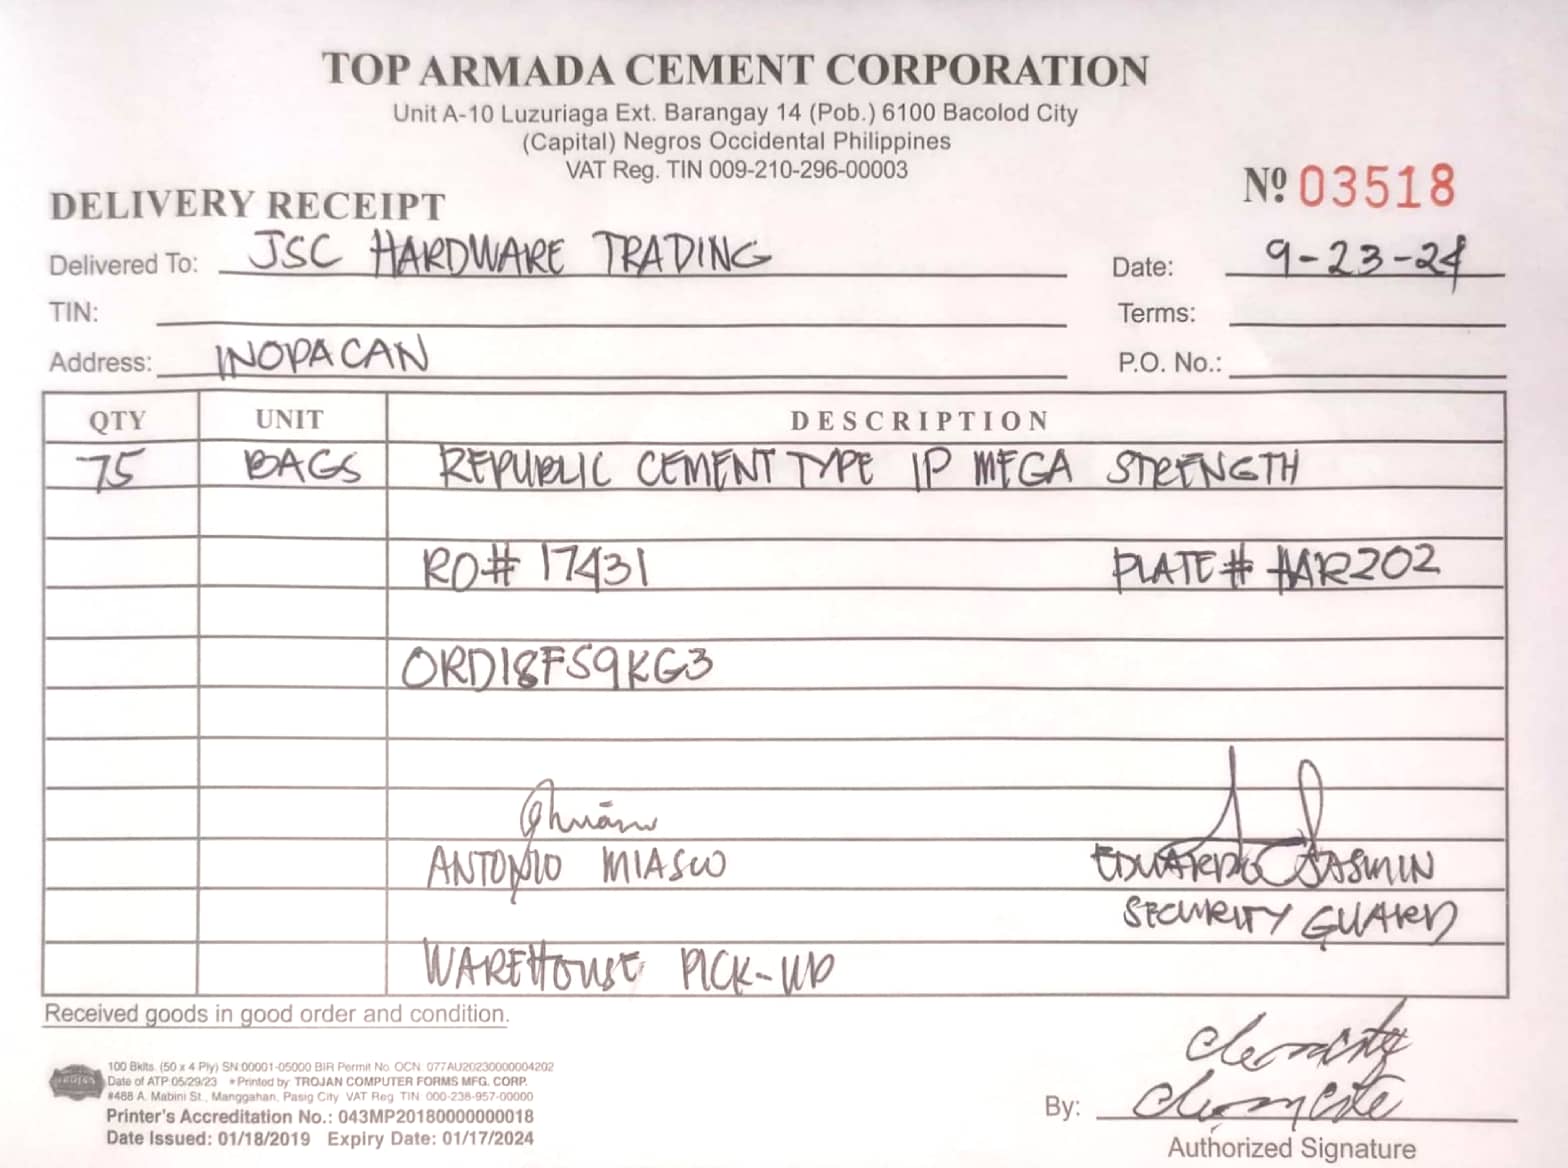 TOP ARMADA CEMENT CORPORATION
Unit A-10 Luzuriaga Ext. Barangay 14 (Pob.) 6100 Bacolod City
(Capital) Negros Occidental Philippines
VAT Reg. TIN 009-210-296-00003
Nº 03518
DELIVERY RECEIPT
Delivered To: JSC HARDWARE TRADING Date: 9-23-24
TIN: Terms:
Address: INOPACAN P.O. No.:
QTY UNIT DESCRIPTION
75 BAGS REPUBLIC CEMENT TYPE 1P MEGA STRENGTH
RO# 17431 PLATE# HAR202
ORD18FS9KG3
ANTONIO MIASCO EDUARDO JASMIN
SECURITY GUARD
WAREHOUSE PICK-UP
Received goods in good order and condition.
100 Bklts. (50 x 4 Ply) SN:00001-05000 BIR Permit No. OCN. 077AU20230000004202
Date of ATP:05/29/23 *Printed by: TROJAN COMPUTER FORMS MFG. CORP.
#488 A. Mabini St., Manggahan, Pasig City VAT Reg. TIN: 000-238-957-00000
Printer's Accreditation No.: 043MP20180000000018
Date Issued: 01/18/2019 Expiry Date: 01/17/2024
By:
Authorized Signature